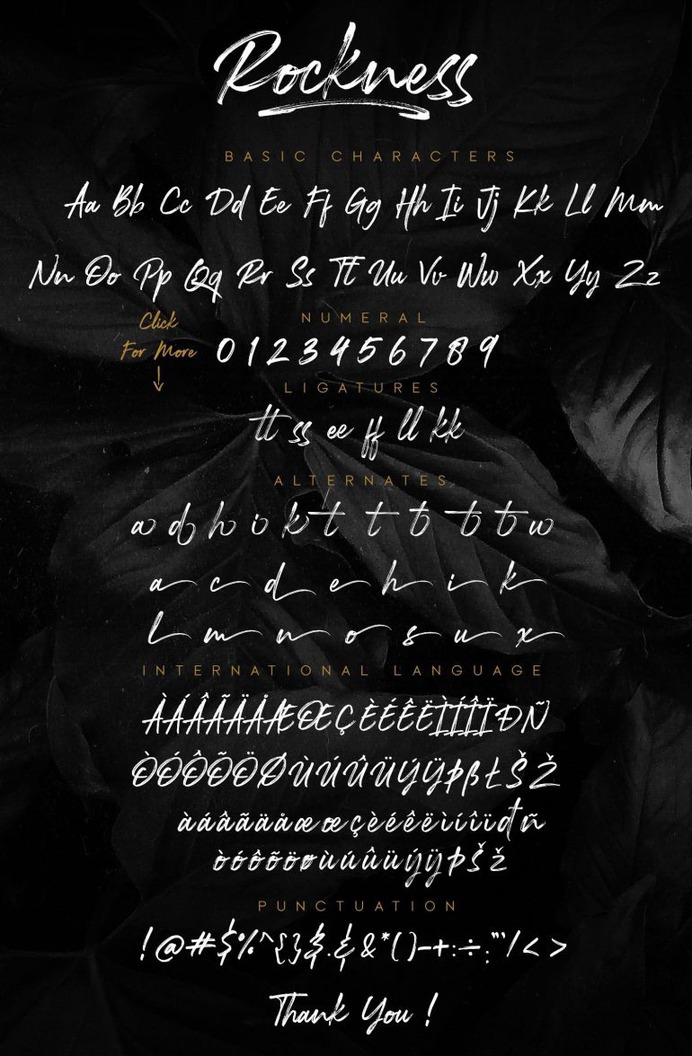 Rockness
BASIC CHARACTERS
Aa Bb Cc Dd Ee Ff Gg Hh Ii Jj Kk Ll Mm
Nn Oo Pp Qq Rr Ss Tt Uu Vv Ww Xx Yy Zz
Click
For More
NUMERAL
0 1 2 3 4 5 6 7 8 9
LIGATURES
tt ss ee ff ll kk
ALTERNATES
a d h i k t t t t t w
a c d e h i k
l m n o s u x
INTERNATIONAL LANGUAGE
ÀÁÂÃÄÅÆŒÇÈÉÊËÌÍÎÏÐÑ
ÒÓÔÕÖØÙÚÛÜÝŸÞßŁŠŽ
àáâãäåæœçèéêëìíîïđñ
òóôõöøùúûüýÿÞŠž
PUNCTUATION
Thank You !